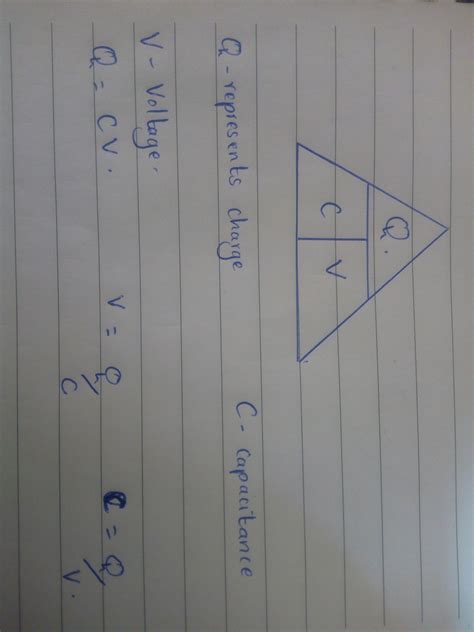 Q.
C V
Q - represents charge C - capacitance
V - Voltage.
Q = CV. V = Q/C C = Q/V.